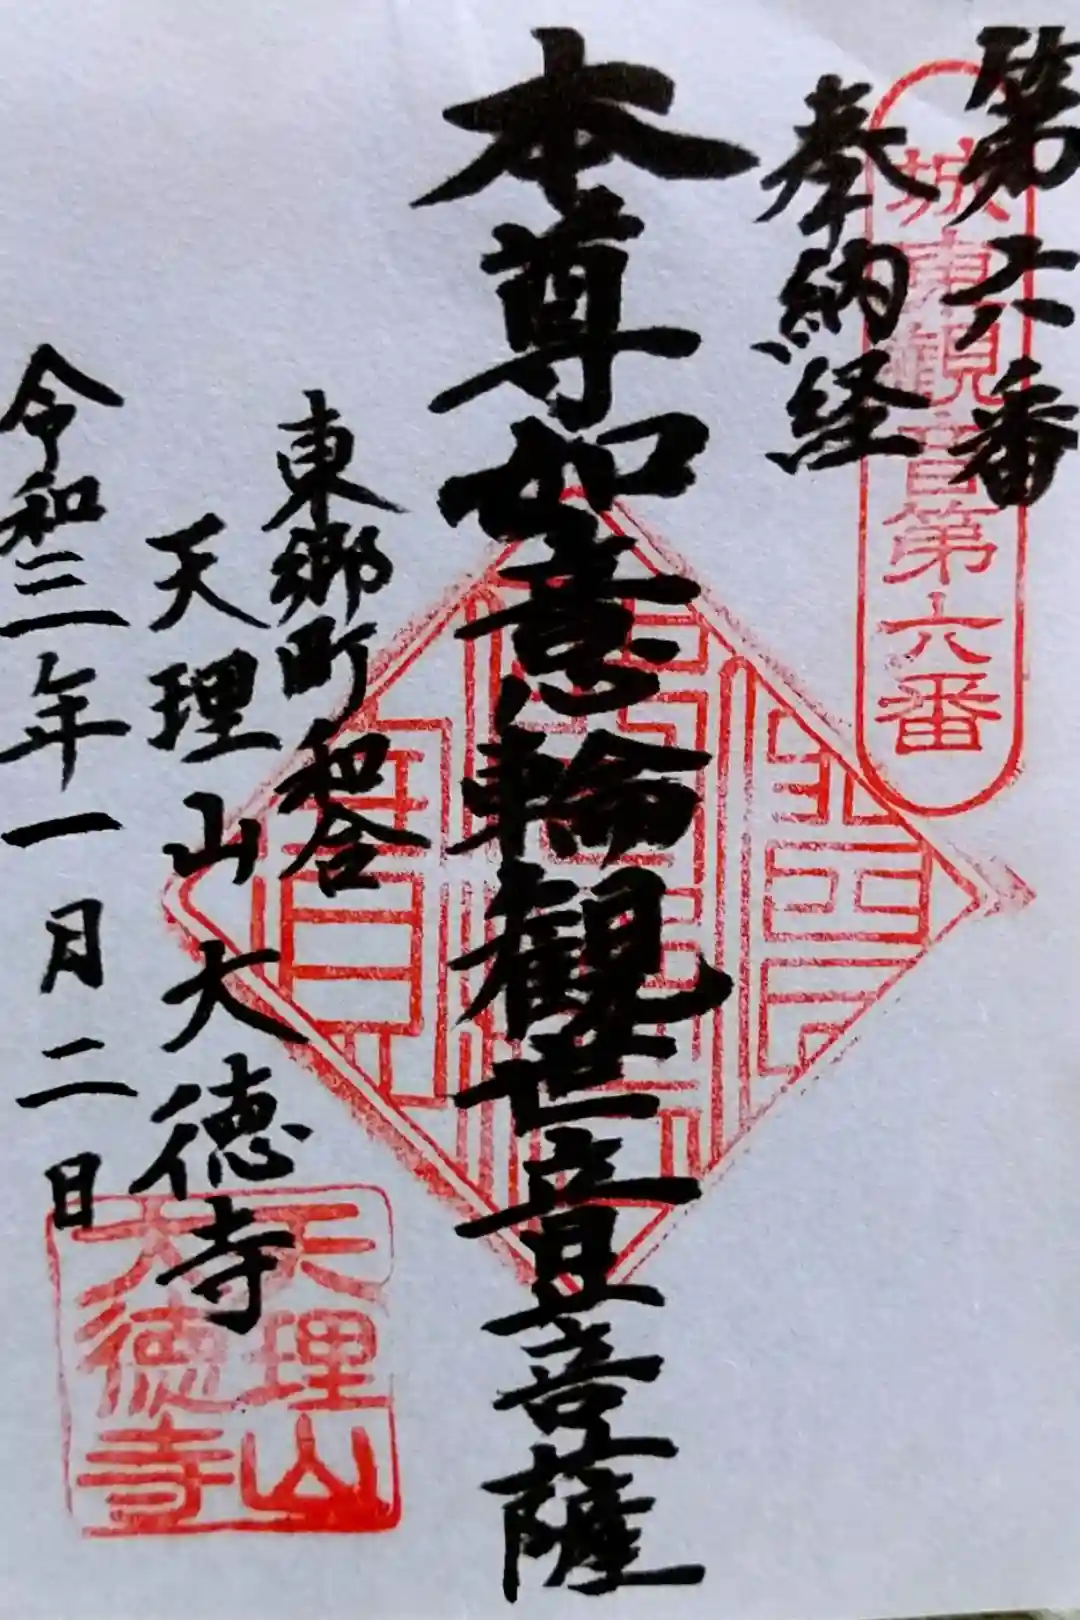 第六番
城東観音第六番
奉納経
本尊如意輪観世音菩薩
東郷町和合
天理山大徳寺
令和三年一月二日
天理山
大徳寺